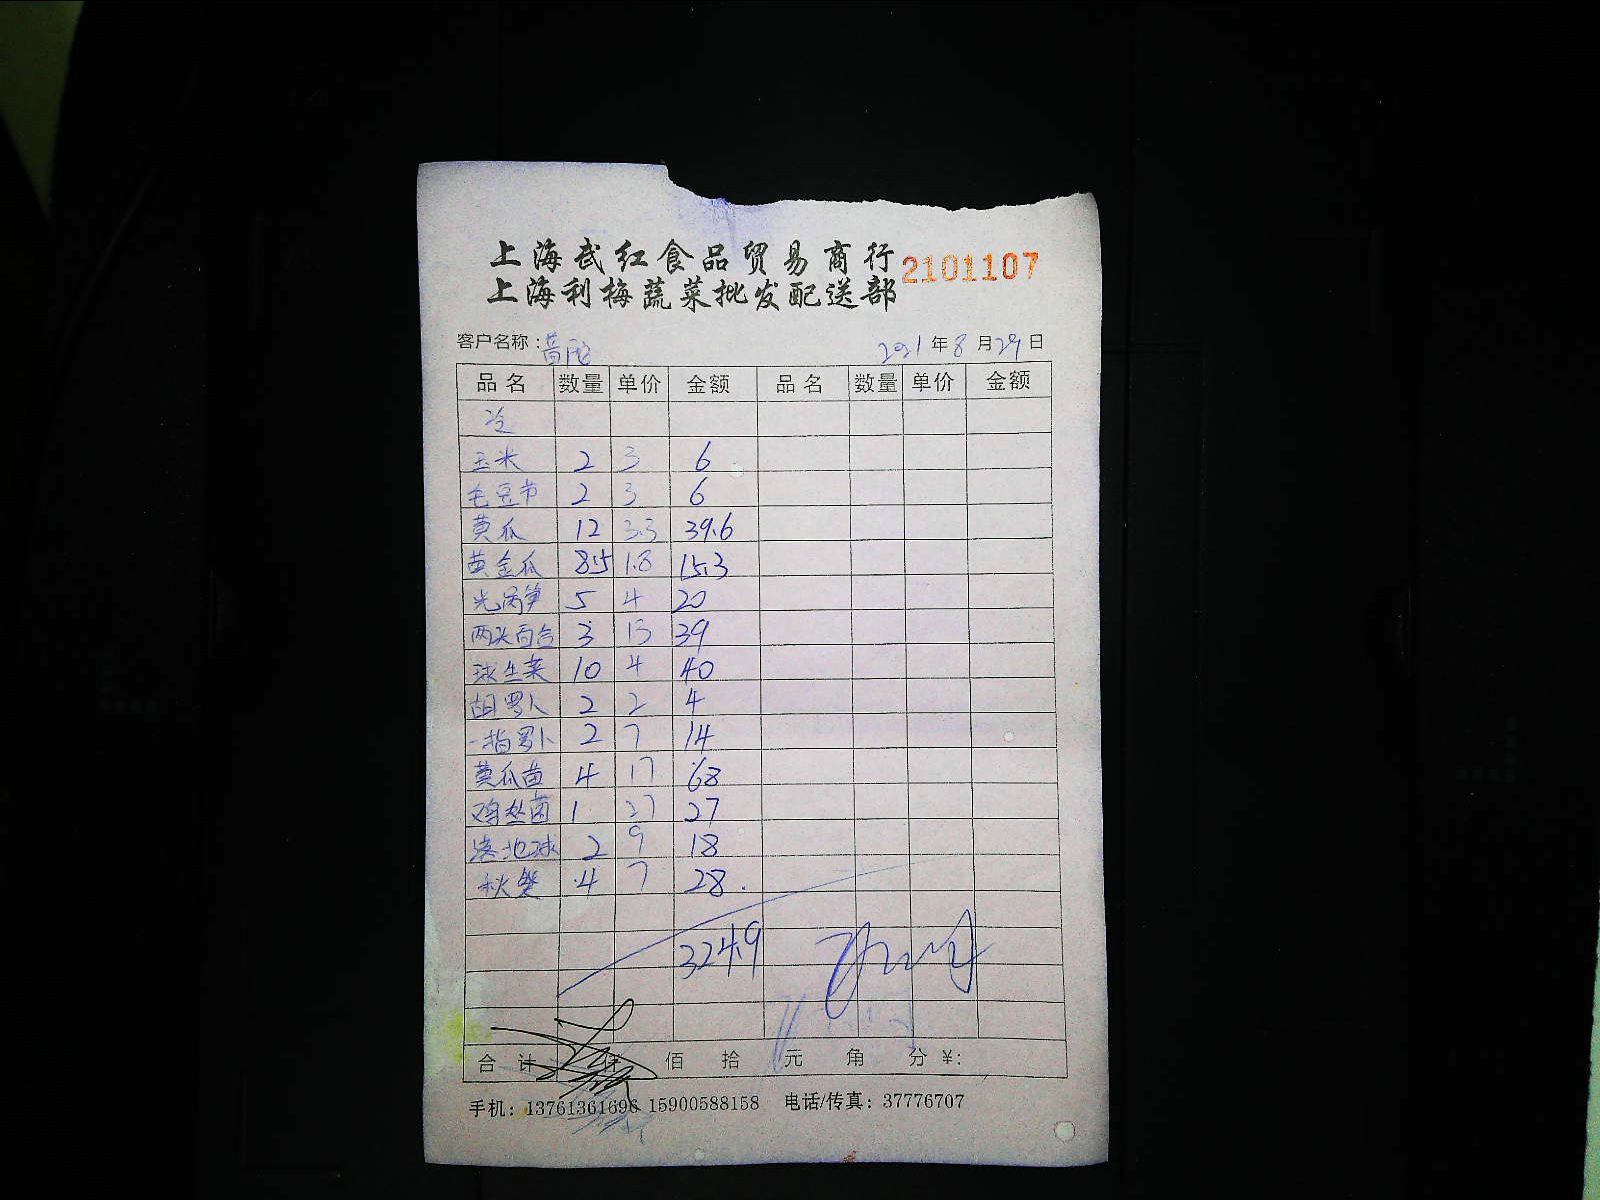 上海武红食品贸易商行 2101107
上海利梅蔬菜批发配送部
客户名称: 2021年8月29日
品名 数量 单价 金额 品名 数量 单价 金额
冷
玉米 2 3 6
毛豆节 2 3 6
黄瓜 12 3.3 39.6
黄金瓜 8.5 1.8 15.3
光莴笋 5 4 20
两头百合 3 13 39
球生菜 10 4 40
胡罗卜 2 2 4
一指罗卜 2 7 14
黄瓜苗 4 17 68
鸡丝菌 1 27 27
2 9 18
秋葵 4 7 28.
324.9
合计 仟 佰 拾 元 角 分 ¥:
手机: 13761361696 15900588158 电话/传真: 37776707